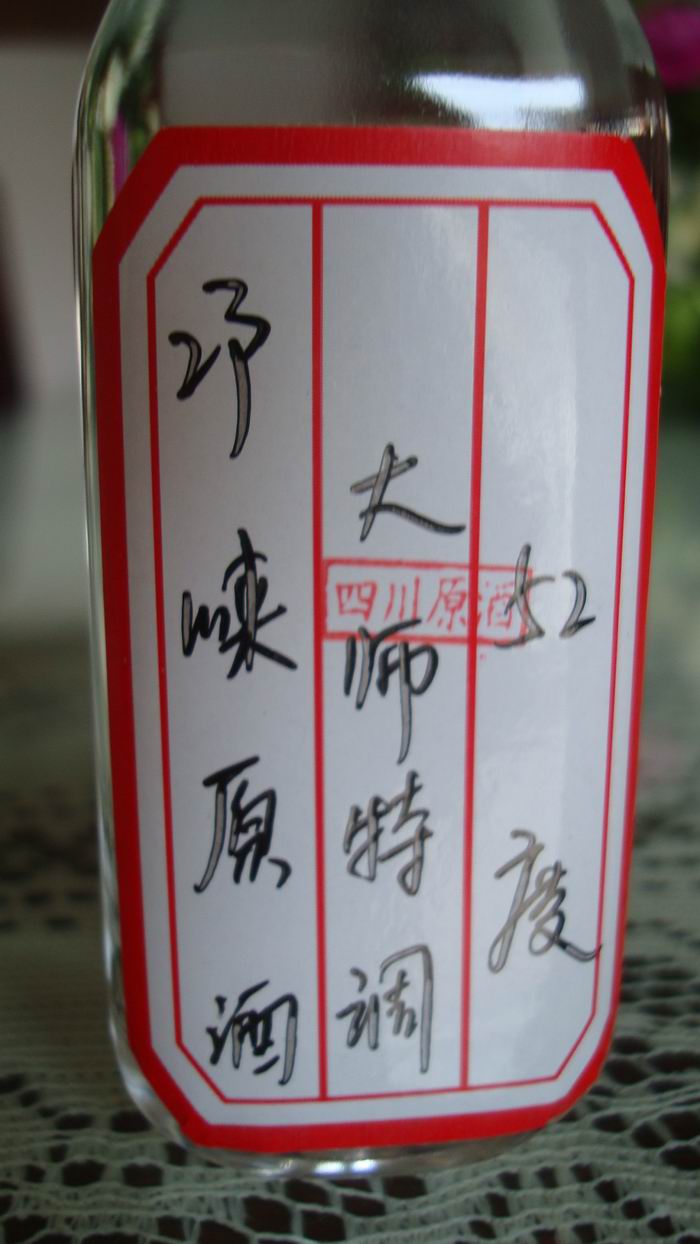 邛崃原酒
大师特调
四川原酒
52度